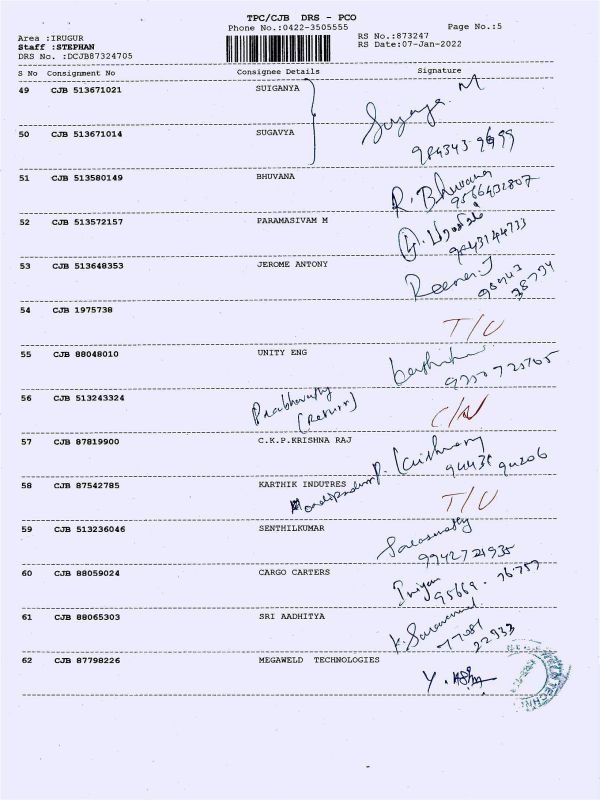 TPC/CJB DRS - PCO
Phone No.:0422-3505555
Page No.:5
Area :IRUGUR
RS No.:873247
Staff :STEPHAN
RS Date:07-Jan-2022
DRS No. :DCJB87324705
S No Consignment No Consignee Details Signature
49 CJB 513671021 SUIGANYA
50 CJB 513671014 SUGAVYA
51 CJB 513580149 BHUVANA R. Bhuvana
9566432807
52 CJB 513572157 PARAMASIVAM M
9843144733
53 CJB 513648353 JEROME ANTONY Reena.J
98943
38734
54 CJB 1975738 T/U
55 CJB 88048010 UNITY ENG
56 CJB 513243324 (Return)
57 CJB 87819900 C.K.P.KRISHNA RAJ
58 CJB 87542785 KARTHIK INDUTRES T/U
59 CJB 513236046 SENTHILKUMAR
9942724935
60 CJB 88059024 CARGO CARTERS
95669. 76757
61 CJB 88065303 SRI AADHITYA
22933
62 CJB 87798226 MEGAWELD TECHNOLOGIES